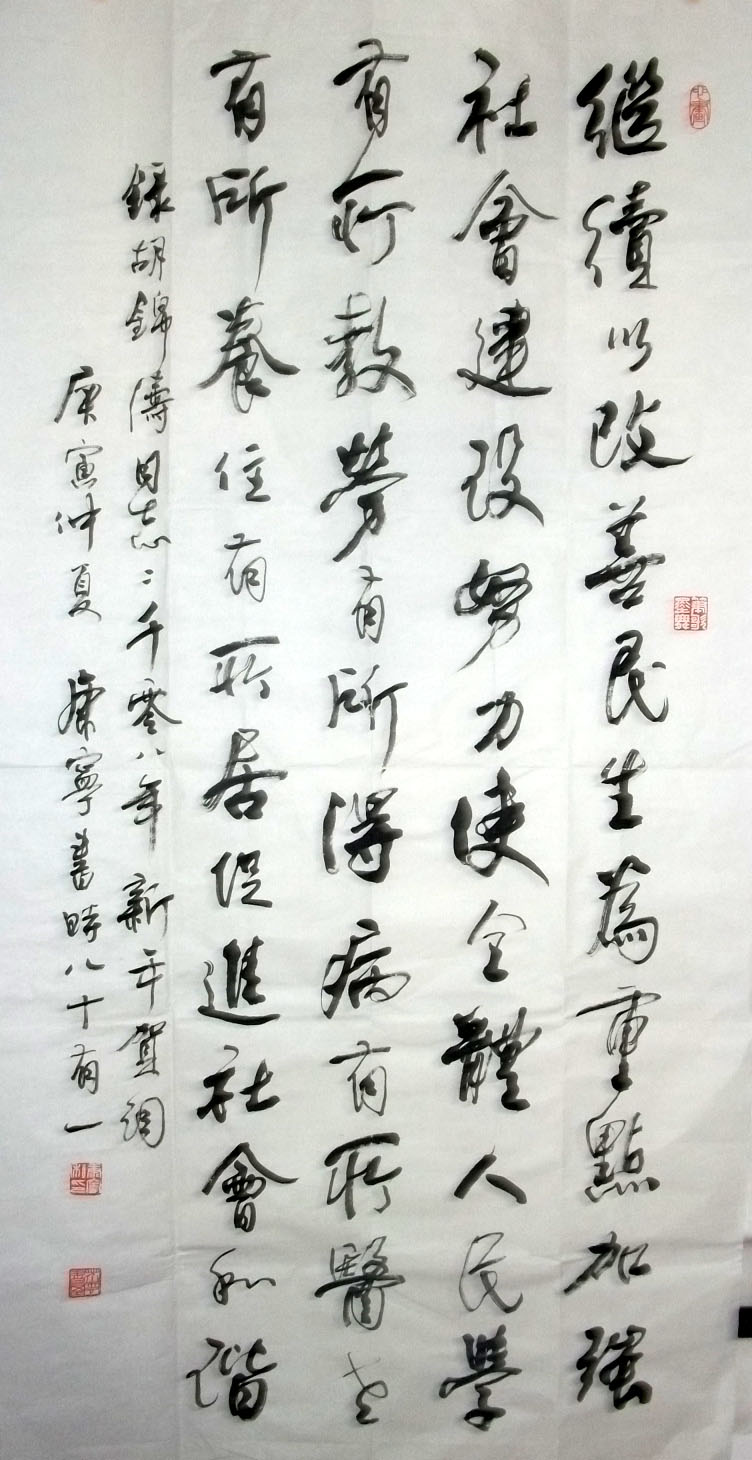 繼續以改善民生為重點加強
社會建設努力使全體人民學
有所教勞有所得病有所醫老
有所養住有所居促進社會和諧
錄胡錦濤同志二千零八年新年賀詞
庚寅仲夏康寧書時八十有一